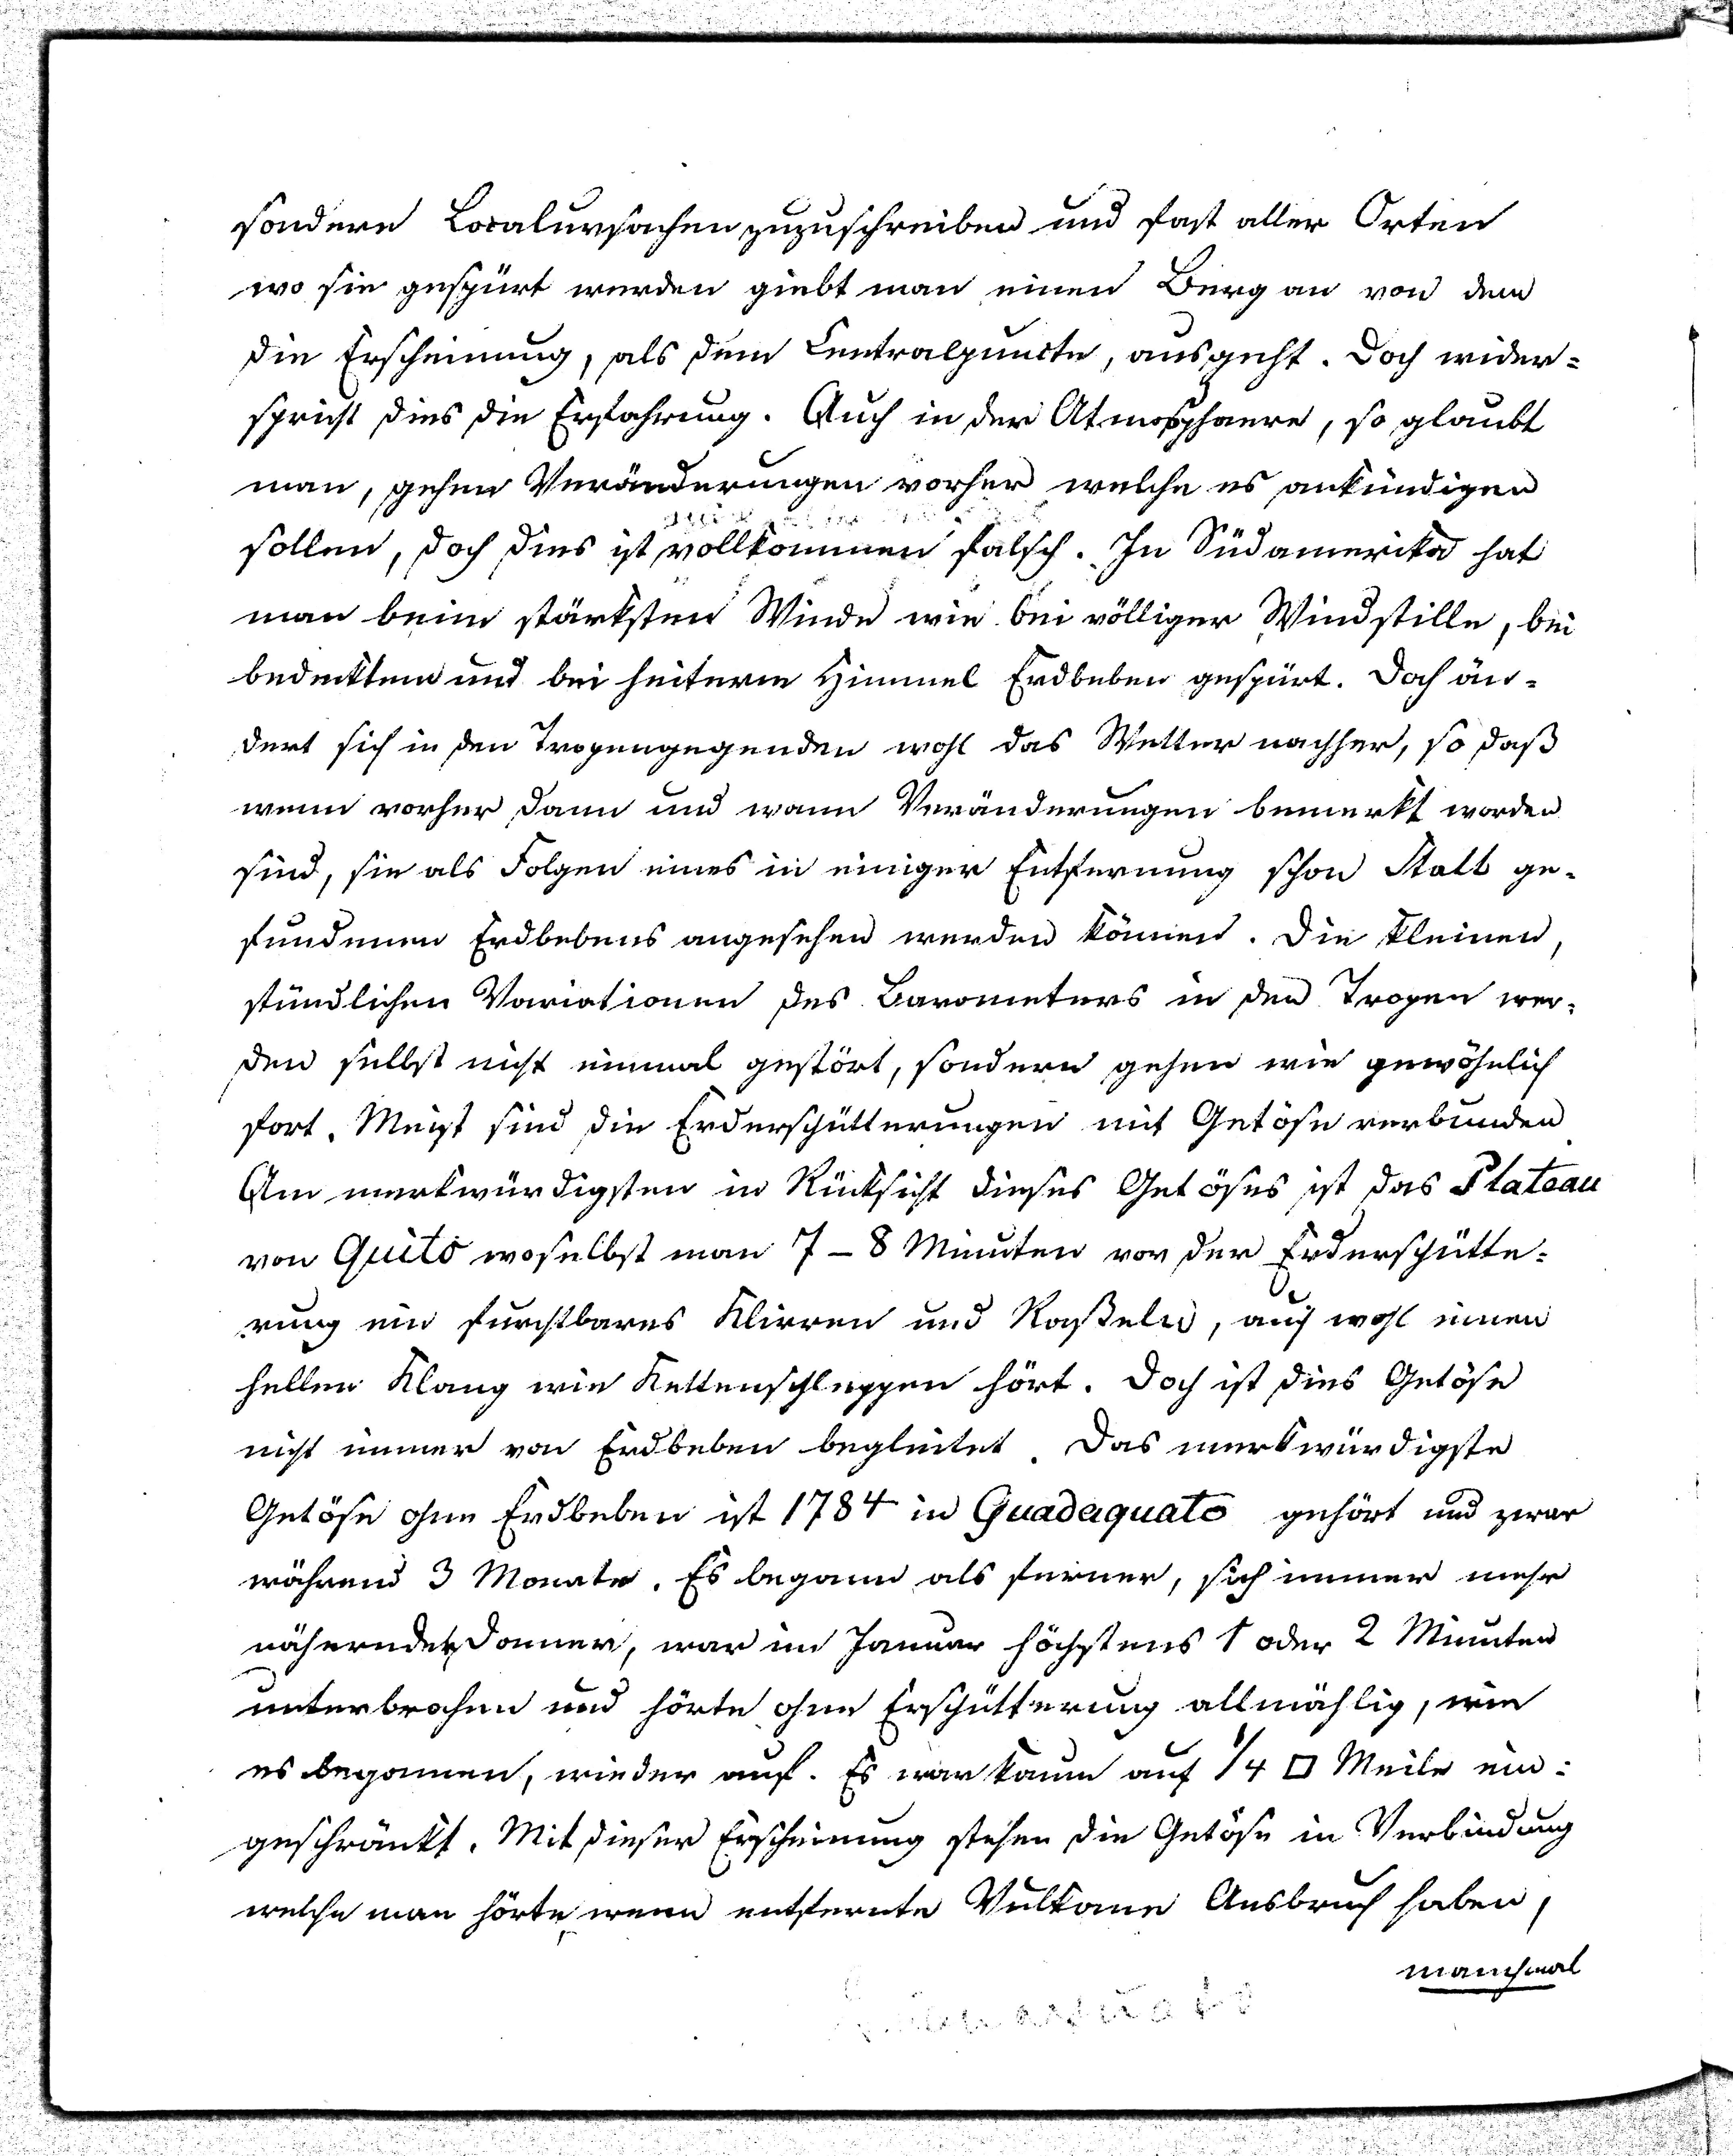 sondern Localursachen zuzuschreiben und fast aller Orten
wo sie gespürt werden giebt man einen Berg an von dem
die Erscheinung, als dem Centralpuncte, ausgeht. Doch wider-
spricht dies die Erfahrung. Auch in der Atmosphaere, so glaubt
man, gehen Veränderungen vorher welche es ankündigen
sollen, doch dies ist vollkommen falsch. In Südamerika hat
man beim stärksten Winde wie bei völliger Windstille, bei
bedecktem und bei heiterm Himmel Erdbeben gespürt. Doch än-
dert sich in den Tropengegenden wohl das Wetter nachher, so daß
wenn vorher dann und wann Veränderungen bemerkt worden
sind, sie als Folgen eines in einiger Entfernung schon Statt ge-
fundenen Erdbebens angesehen werden können. Die kleinen,
stündlichen Variationen des Barometers in den Tropen wer-
den selbst nicht einmal gestört, sondern gehen wie gewöhnlich
fort. Meist sind die Erderschütterungen mit Getöse verbunden
Am merkwürdigsten in Rücksicht dieses Getöses ist das Plateau
von Quito woselbst man 7-8 Minuten vor der Erderschütte-
rung ein furchtbares Klirren und Raßeln, auch wohl einen
hellen Klang wie Kettenschleppen hört. Doch ist dies Getöse
nicht immer von Erdbeben begleitet. Das merkwürdigste
Getöse ohne Erdbeben ist 1784 in Guadaquato gehört und zwar
während 3 Monate. Es begann als ferner, sich immer mehr
nähernder Donner, war im Januar höchstens 1 oder 2 Minuten
unterbrochen und hörte ohne Erschütterung allmählig, wie
es begonnen, wieder auf. Es war kaum auf 1/4 □ Meile ein-
geschränkt. Mit dieser Erscheinung stehen die Getöse in Verbindung
welche man hörte, wenn entfernte Vulkane Ausbruch haben,
manchmal